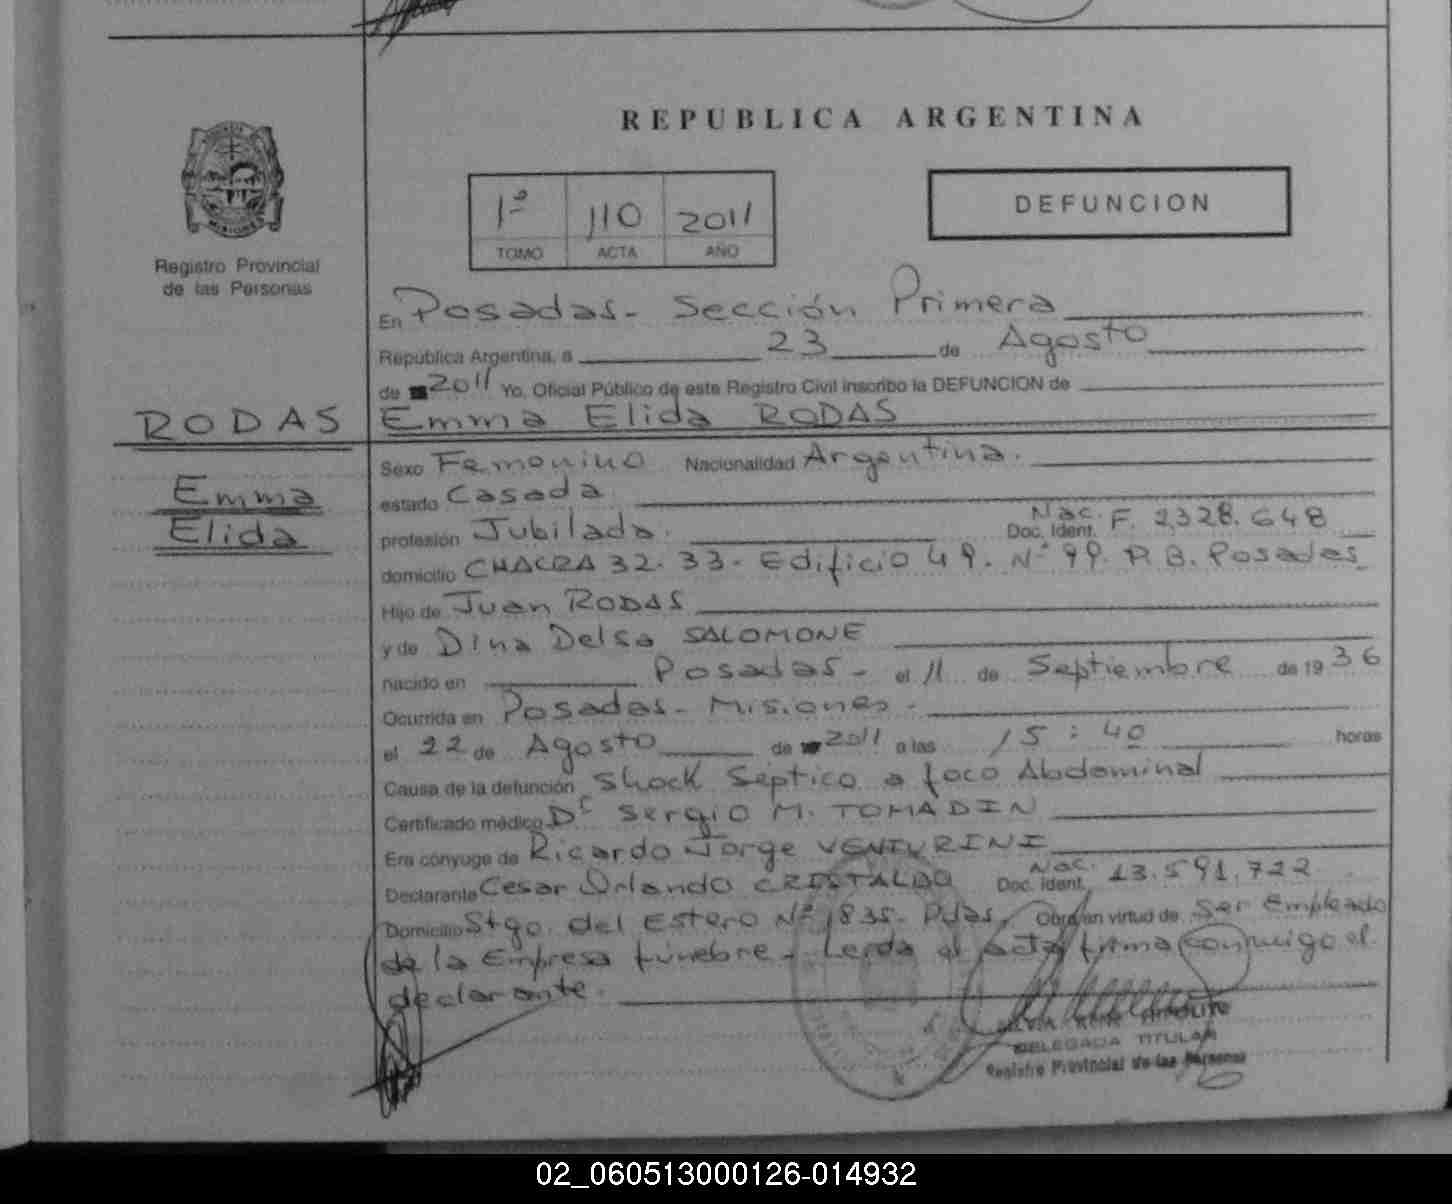 REPUBLICA ARGENTINA
1º 110 2011
TOMO ACTA AÑO
DEFUNCION
MISIONES
Registro Provincial
de las Personas
En Posadas - Sección Primera
República Argentina, a 23 de Agosto
de 2011 Yo, Oficial Público de este Registro Civil inscribo la DEFUNCION de
RODAS
Emma
Elida
Emma Elida RODAS
Sexo Femenino Nacionalidad Argentina.
estado Casada
profesión Jubilada. Doc. Ident. Nac. F. 2328.648
domicilio CHACRA 32-33- Edificio 49. Nº 99. P.B. Posadas
Hijo de Juan RODAS
y de Dina Delsa SALOMONE
nacido en Posadas - el 11 de Septiembre de 1936
Ocurrida en Posadas - Misiones -
el 22 de Agosto de 2011 a las 15:40 horas
Causa de la defunción Shock Séptico a foco Abdominal
Certificado médico Dr Sergio M. TOMADIN
Era cónyuge de Ricardo Jorge VENTURINI
Declarante Cesar Orlando CRISTALDO Doc. Ident. Nac. 13.591.722
Domicilio Stgo. del Estero Nº 1835- Pdas. Obra en virtud de Ser Empleado
de la Empresa fúnebre - Leida el acta firma conmigo el
declarante.
HIPOLITO
DELEGADA TITULAR
Registro Provincial de las Personas
02_060513000126-014932